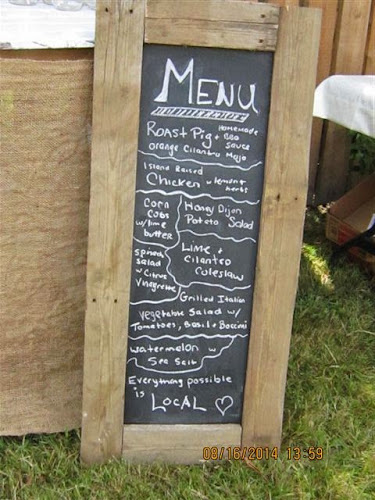 MENU
Roast Pig + Homemade
BBQ
Sauce
orange Cilantro Mojo
Island Raised
Chicken w lemon +
herbs
Corn
Cobs
w/lime
butter
Honey Dijon
Potato Salad
Spinach
Salad
w Citrus
Vinagrette
Lime +
Cilantro
Coleslaw
Grilled Italian
Vegetable Salad w/
Tomatoes, Basil + Boccini
Watermelon w
Sea Salt
Everything possible
is
LOCAL ♡
08/16/2014 13:59